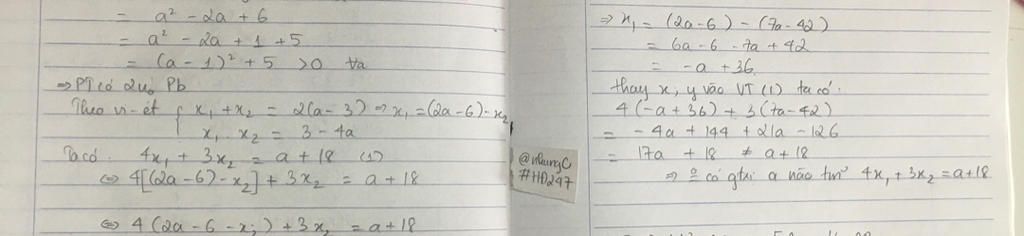 = a² - 2a + 6
= a² - 2a + 1 + 5
= (a - 1)² + 5 > 0 ∀a
⇒ PT có 2 no Pb
Theo vi-ét { x₁ + x₂ = 2(a - 3) ⇒ x₁ = (2a - 6) - x₂
x₁ . x₂ = 3 - 4a
Ta có. 4x₁ + 3x₂ = a + 18 (1)
⇔ 4[(2a - 6) - x₂] + 3x₂ = a + 18
⇔ 4(2a - 6 - x₂) + 3x₂ = a + 18
@nhungC
#HĐ247
⇒ x₁ = (2a - 6) - (7a - 42)
= 6a - 6 - 7a + 42
= -a + 36.
thay x, y vào VT (1) ta có.
4(-a + 36) + 3(7a - 42)
= -4a + 144 + 21a - 126
= 17a + 18 ≠ a + 18
⇒ có gtrị a nào tm 4x₁ + 3x₂ = a + 18